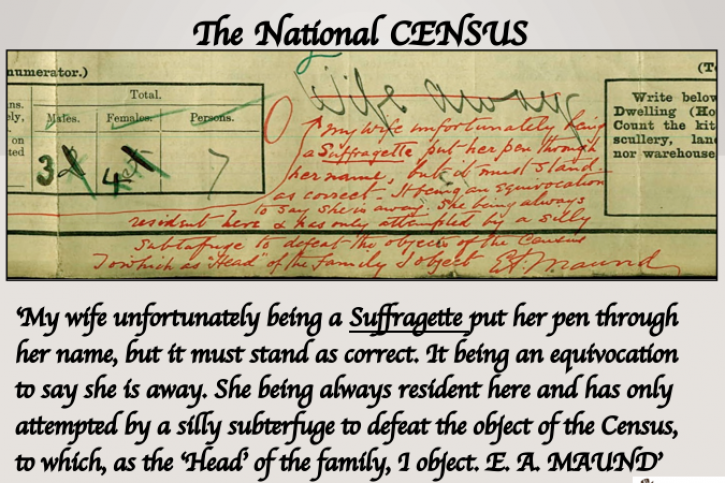 The National CENSUS
numerator.)
(T
Total.
ns.
Males.
Females.
Persons.
ely,
on
ted
3
4
7
Write below
Dwelling (Ho
Count the kit
scullery, lan
nor warehouse
my wife unfortunately being
a Suffragette put her pen through
her name, but it must stand
as correct. It being an equivocation
to say she is away. She being always
resident here & has only attempted by a silly
subtafuge to defeat the object of the Census
To which as "Head" of the family I object E.A. Maund
'My wife unfortunately being a Suffragette put her pen through
her name, but it must stand as correct. It being an equivocation
to say she is away. She being always resident here and has only
attempted by a silly subterfuge to defeat the object of the Census,
to which, as the 'Head' of the family, I object. E. A. MAUND'